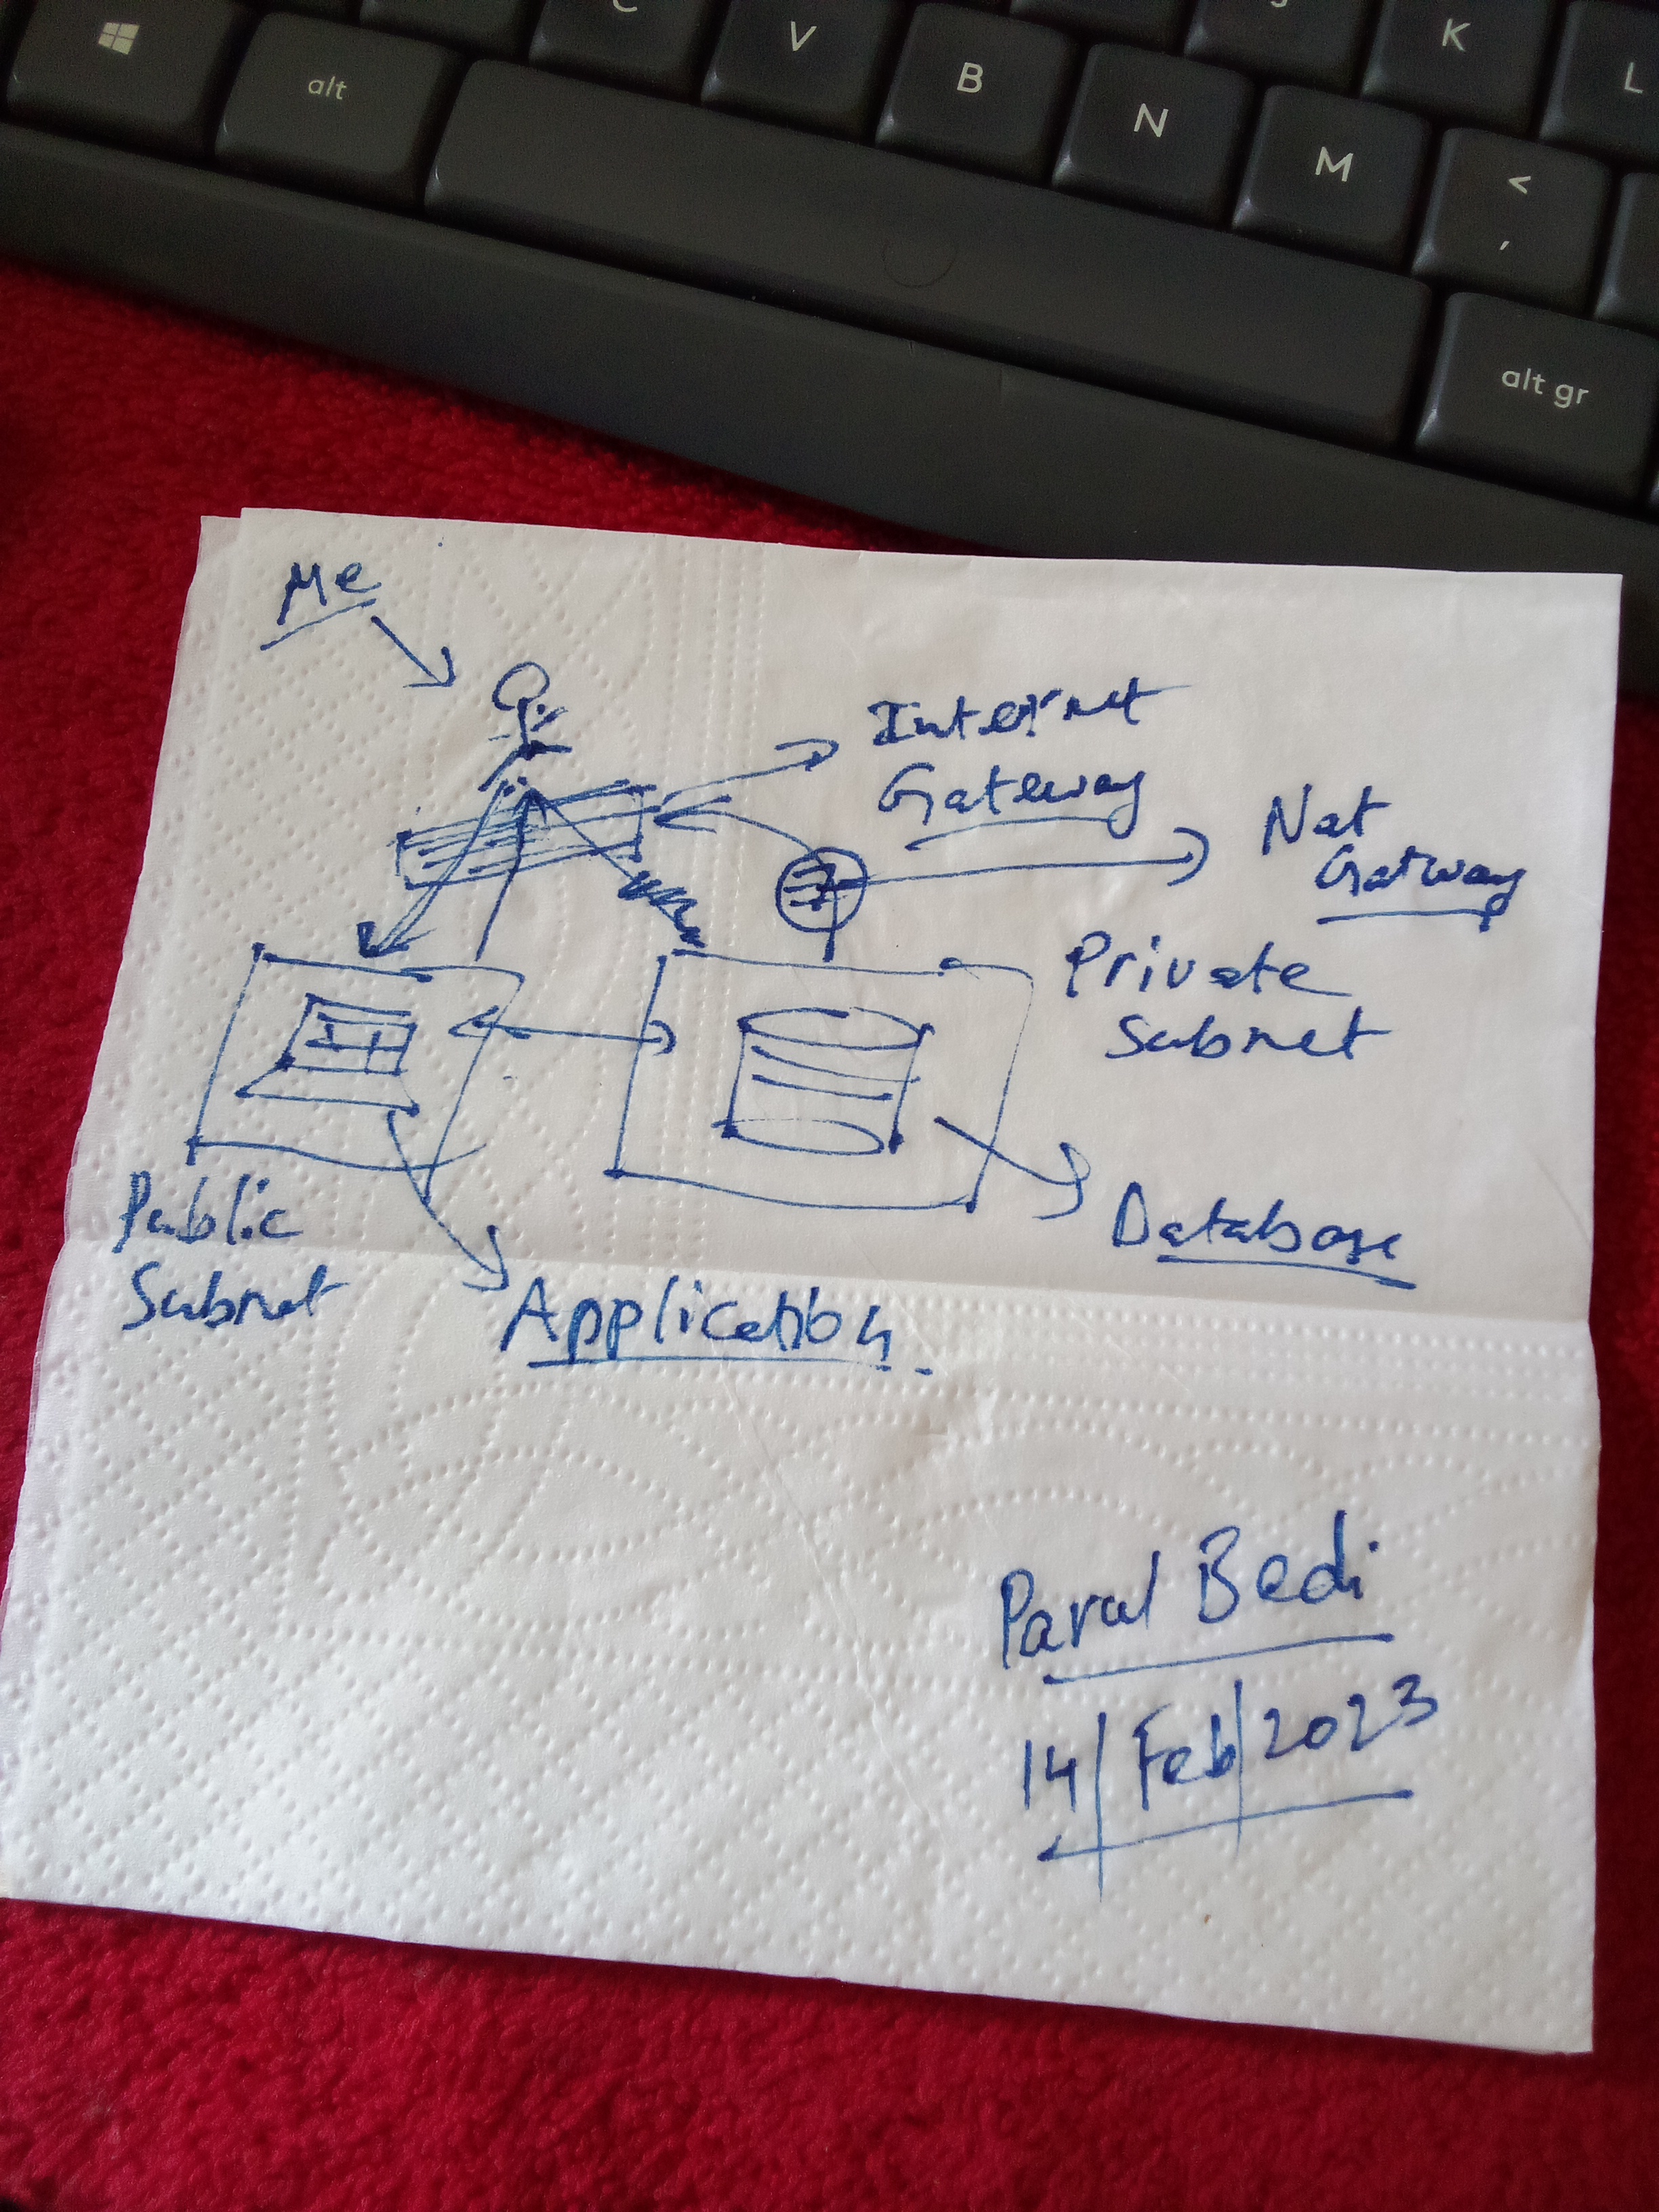 C
V
J
K
L
alt
B
N
M
<
,
alt gr
Me
Internet
Gateway
Nat
Gatway
Private
Subnet
Public
Subnet
Database
Application
Parul Bedi
14/Feb/2023